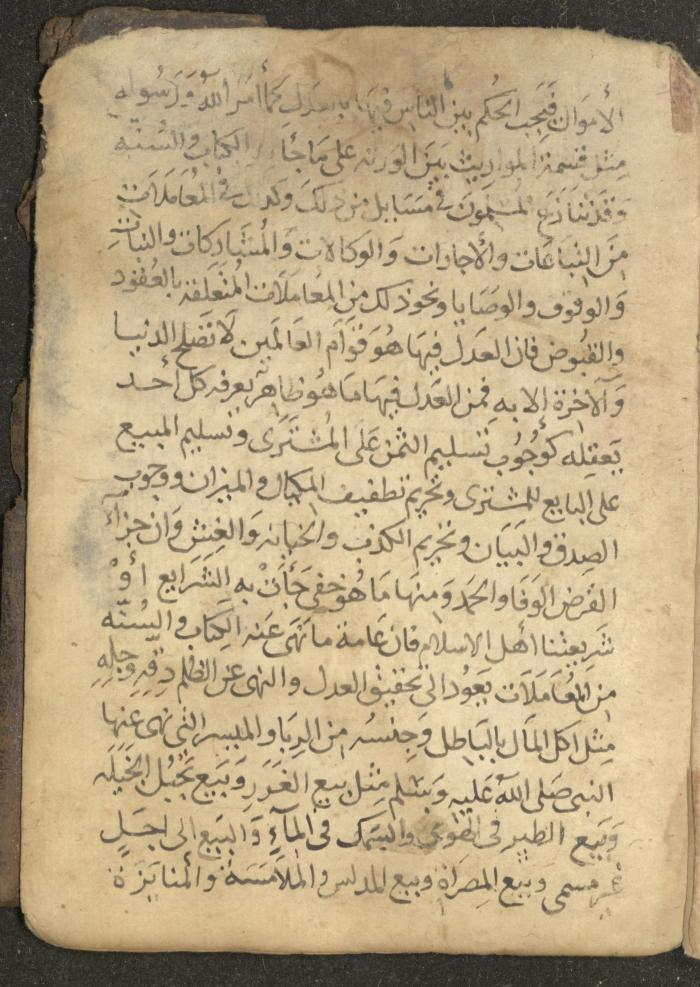 الأموال فيجب الحكم بين الناس فيها بالعدل كما أمر الله ورسوله
مثل قسمة المواريث بين الورثة على ما جاء الكتاب والسنه
وقد تنازع المسلمون في مسايل من ذلك وكذلك في المعاملات
من البياعات والأجارات والوكالات والمشاركات والهبات
والوقوف والوصايا ونحو ذلك من المعاملات المتعلقة بالعقود
والقبوض فان العدل فيها هو قوام العالمين لا تصلح الدنيا
والآخرة إلا به فمن العدل فيها ما هو ظاهر يعرفه كل أحد
بعقله كوجوب تسليم الثمن على المشتري وتسليم المبيع
على البايع للمشتري وتحريم تطفيف المكيال والميزان ووجوب
الصدق والبيان وتحريم الكذب والخيانه والغش وان جزاء
القرض الوفا والحمد ومنها ما هو خفي جأت به الشرايع أو
شريعتنا أهل الاسلام فان عامة ما نهى عنه الكتاب والسنه
من المعاملات يعود الى تحقيق العدل والنهى عن الظلم دقه وجله
مثل اكل المال بالباطل وجنسه من الربا والميسر التي نهى عنها
النبى صلى الله عليه وسلم مثل بيع الغرر وبيع حبل الحبله
وبيع الطير في الهوى والسمك في الماء والبيع الى اجل
غير مسمى وبيع المصراة وبيع المدلس والملامسة والمنابزة